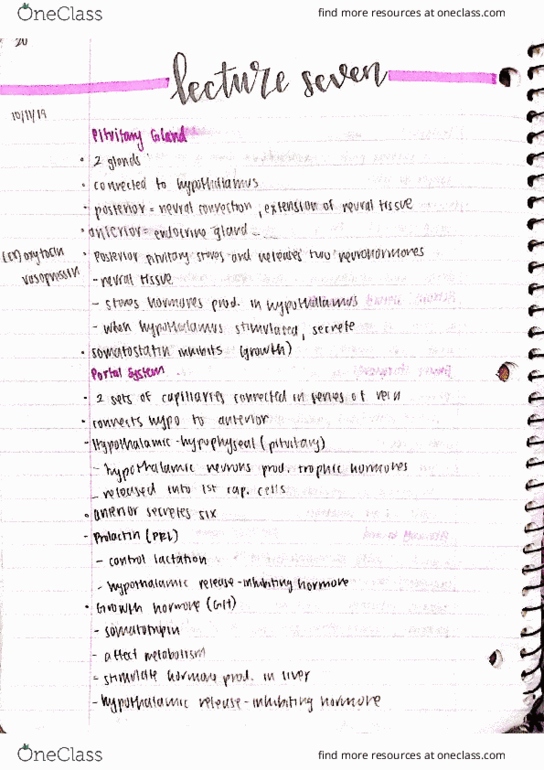 OneClass
find more resources at oneclass.com
20
lecture seven
10/11/19
Pituitary Gland
• 2 glands
• connected to hypothalamus
• posterior = neural connection, extension of neural tissue
• anterior = endocrine gland
oxytocin
vasopressin
• Posterior pituitary stores and releases two neurohormones
- neural tissue
- stores hormones prod. in hypothallamus
- when hypothalamus stimulated, secrete
• somatostatin inhibits (growth)
Portal System
• 2 sets of capillaries connected in series of vein
• connects hypo to anterior
- Hypothalamic-hypophyseal (pituitary)
- hypothalamic neurons prod. trophic hormones
- released into 1st cap. cells
• anterior secretes six
- Prolactin (PRL)
- control lactation
- hypothalamic release-inhibiting hormone
• Growth hormone (GH)
- somatotropin
- affect metabolism
- stimulate hormone prod. in liver
- hypothalamic release-inhibiting hormone
OneClass
find more resources at oneclass.com